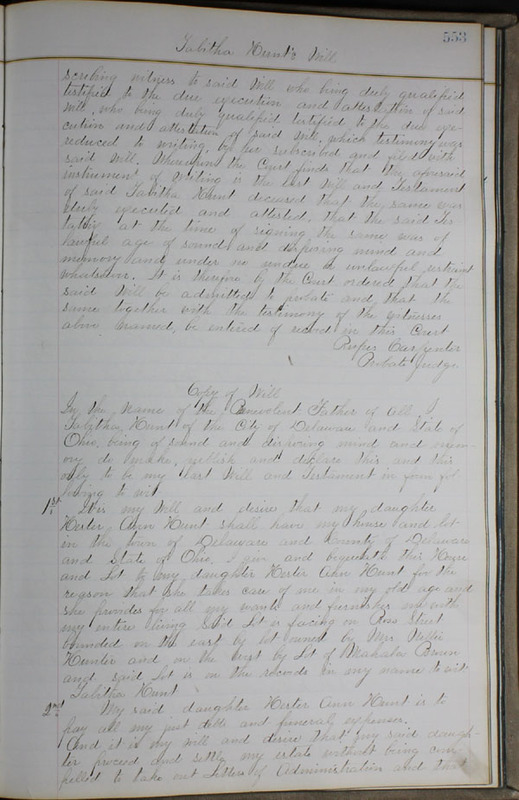 553
Tabitha Hunt's Will
scribing witness to said Will who being duly qualified
testified to the due execution and attestation of said
Will, who being duly qualified testified to the due exe-
cution and attestation of said Will, which testimony was
reduced to writing by her subscribed and filed with
said Will. Whereupon the Court finds that the aforesaid
instrument of writing is the last Will and Testament
of said Tabitha Hunt deceased that the same was
duly executed and attested, that the said Tes
tatrix at the time of signing the same was of
lawful age of sound and disposing mind and
memory and under no undue or unlawful restraint
whatsoever. It is therefore by the Court ordered that the
said Will be admitted to probate and that the
same together with the testimony of the witnesses
above named, be entered of record in this Court
Rufus Carpenter
Probate Judge.
Copy of Will
In the Name of the Benevolent Father of All, I
Tabitha Hunt of the City of Delaware and State of
Ohio, being of sound and disposing mind and mem-
ory do make, publish and declare this and this
only to be my last Will and Testament in form fol
lowing to wit.
1st It is my Will and desire that my daughter
Hester Ann Hunt shall have my house and lot
in the town of Delaware and County of Delaware
and State of Ohio, I give and bequeath this House
and Lot to my daughter Hester Ann Hunt for the
reason that she takes care of me in my old age and
she provides for all my wants and furnishes me with
my entire living Said Lot is facing on Ross Street
bounded on the east by lot owned by Mrs Nellie
Hunter and on the West by Lot of Mahala Brown
and said Lot is on the records in my name to wit
Tabitha Hunt
2nd My said daughter Hester Ann Hunt is to
pay all my just debts and funeral expenses.
And it is my will and desire that my said daugh-
ter proceed and settle my estate without being com
pelled to take out Letters of Administration and that